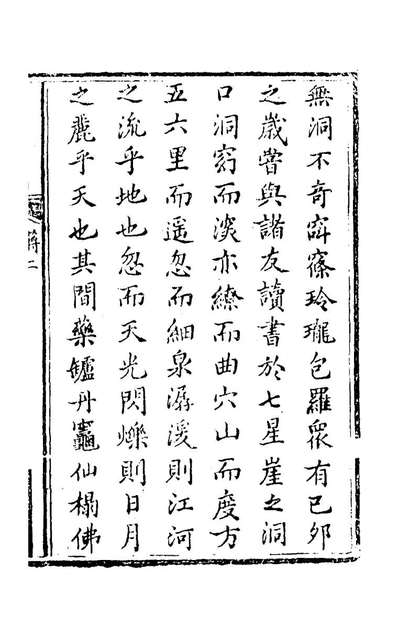 無洞不奇玲瓏包羅衆有己卯
之歲嘗與諸友讀書於七星崖之洞
口洞窈而深亦繚而曲穴山而度方
五六里而遥忽而細泉潺湲則江河
之流乎地也忽而天光閃爍則日月
之麗乎天也其間藥鑪丹竈仙榻佛
蔣二